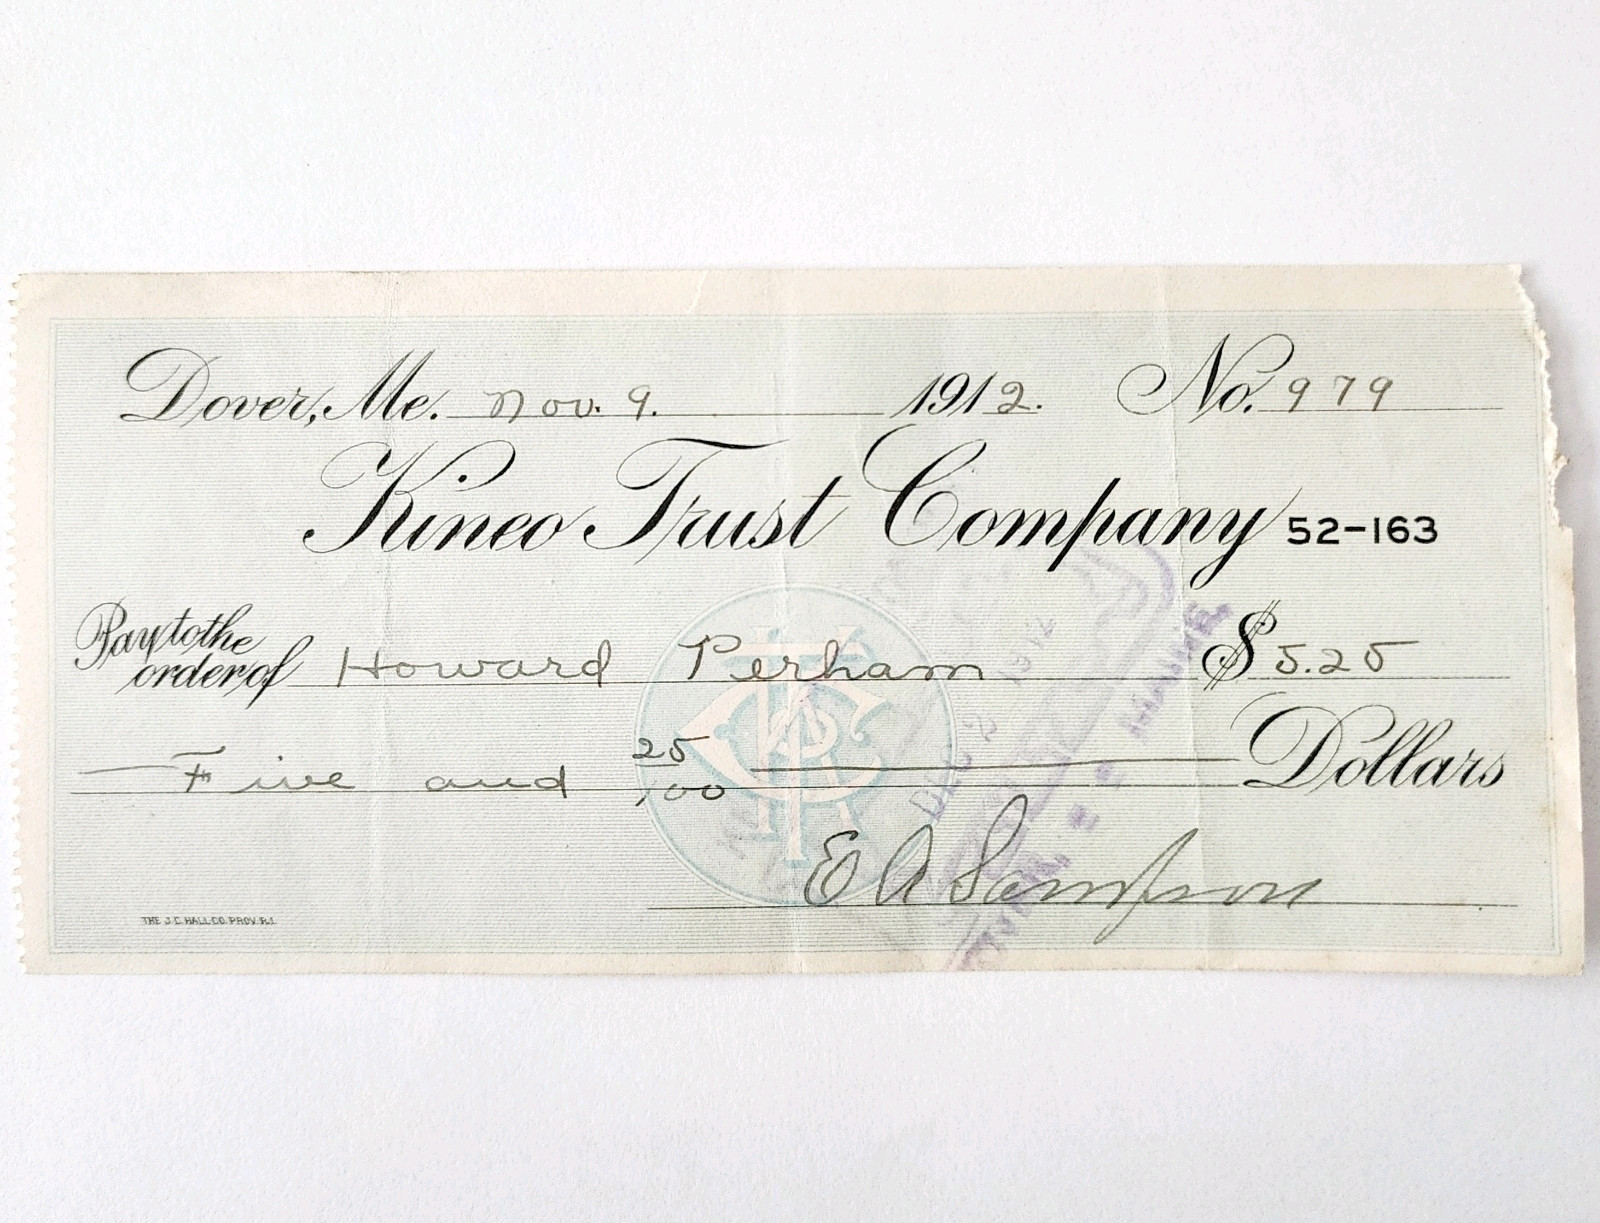 Dover, Me. Nov. 9. 1912. No. 979
Kineo Trust Company 52-163
Pay to the
order of Howard Perham $ 5.25
Five and 25/100 Dollars
E A Sampson
THE J.C. HALL CO. PROV. R.I.
DEC 2 1912
MAINE